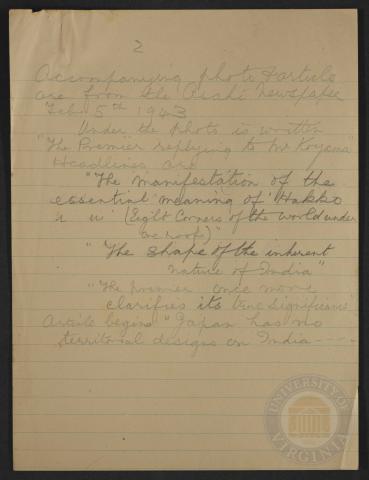 2
Accompanying photo & article
are from the Asahi Newspaper
Feb 5th 1943
Under the photo is written
"The Premier replying to Mr Koyama"
Headlines are
"The manifestation of the
essential meaning of 'Hakko
(Eight Corners of the world under
one roof)"
"The shape of the inherent
nature of India"
"The premier once more
clarifies its true significance"
Article begins "Japan has no
territorial designs on India ----
UNIVERSITY OF
VIRGINIA